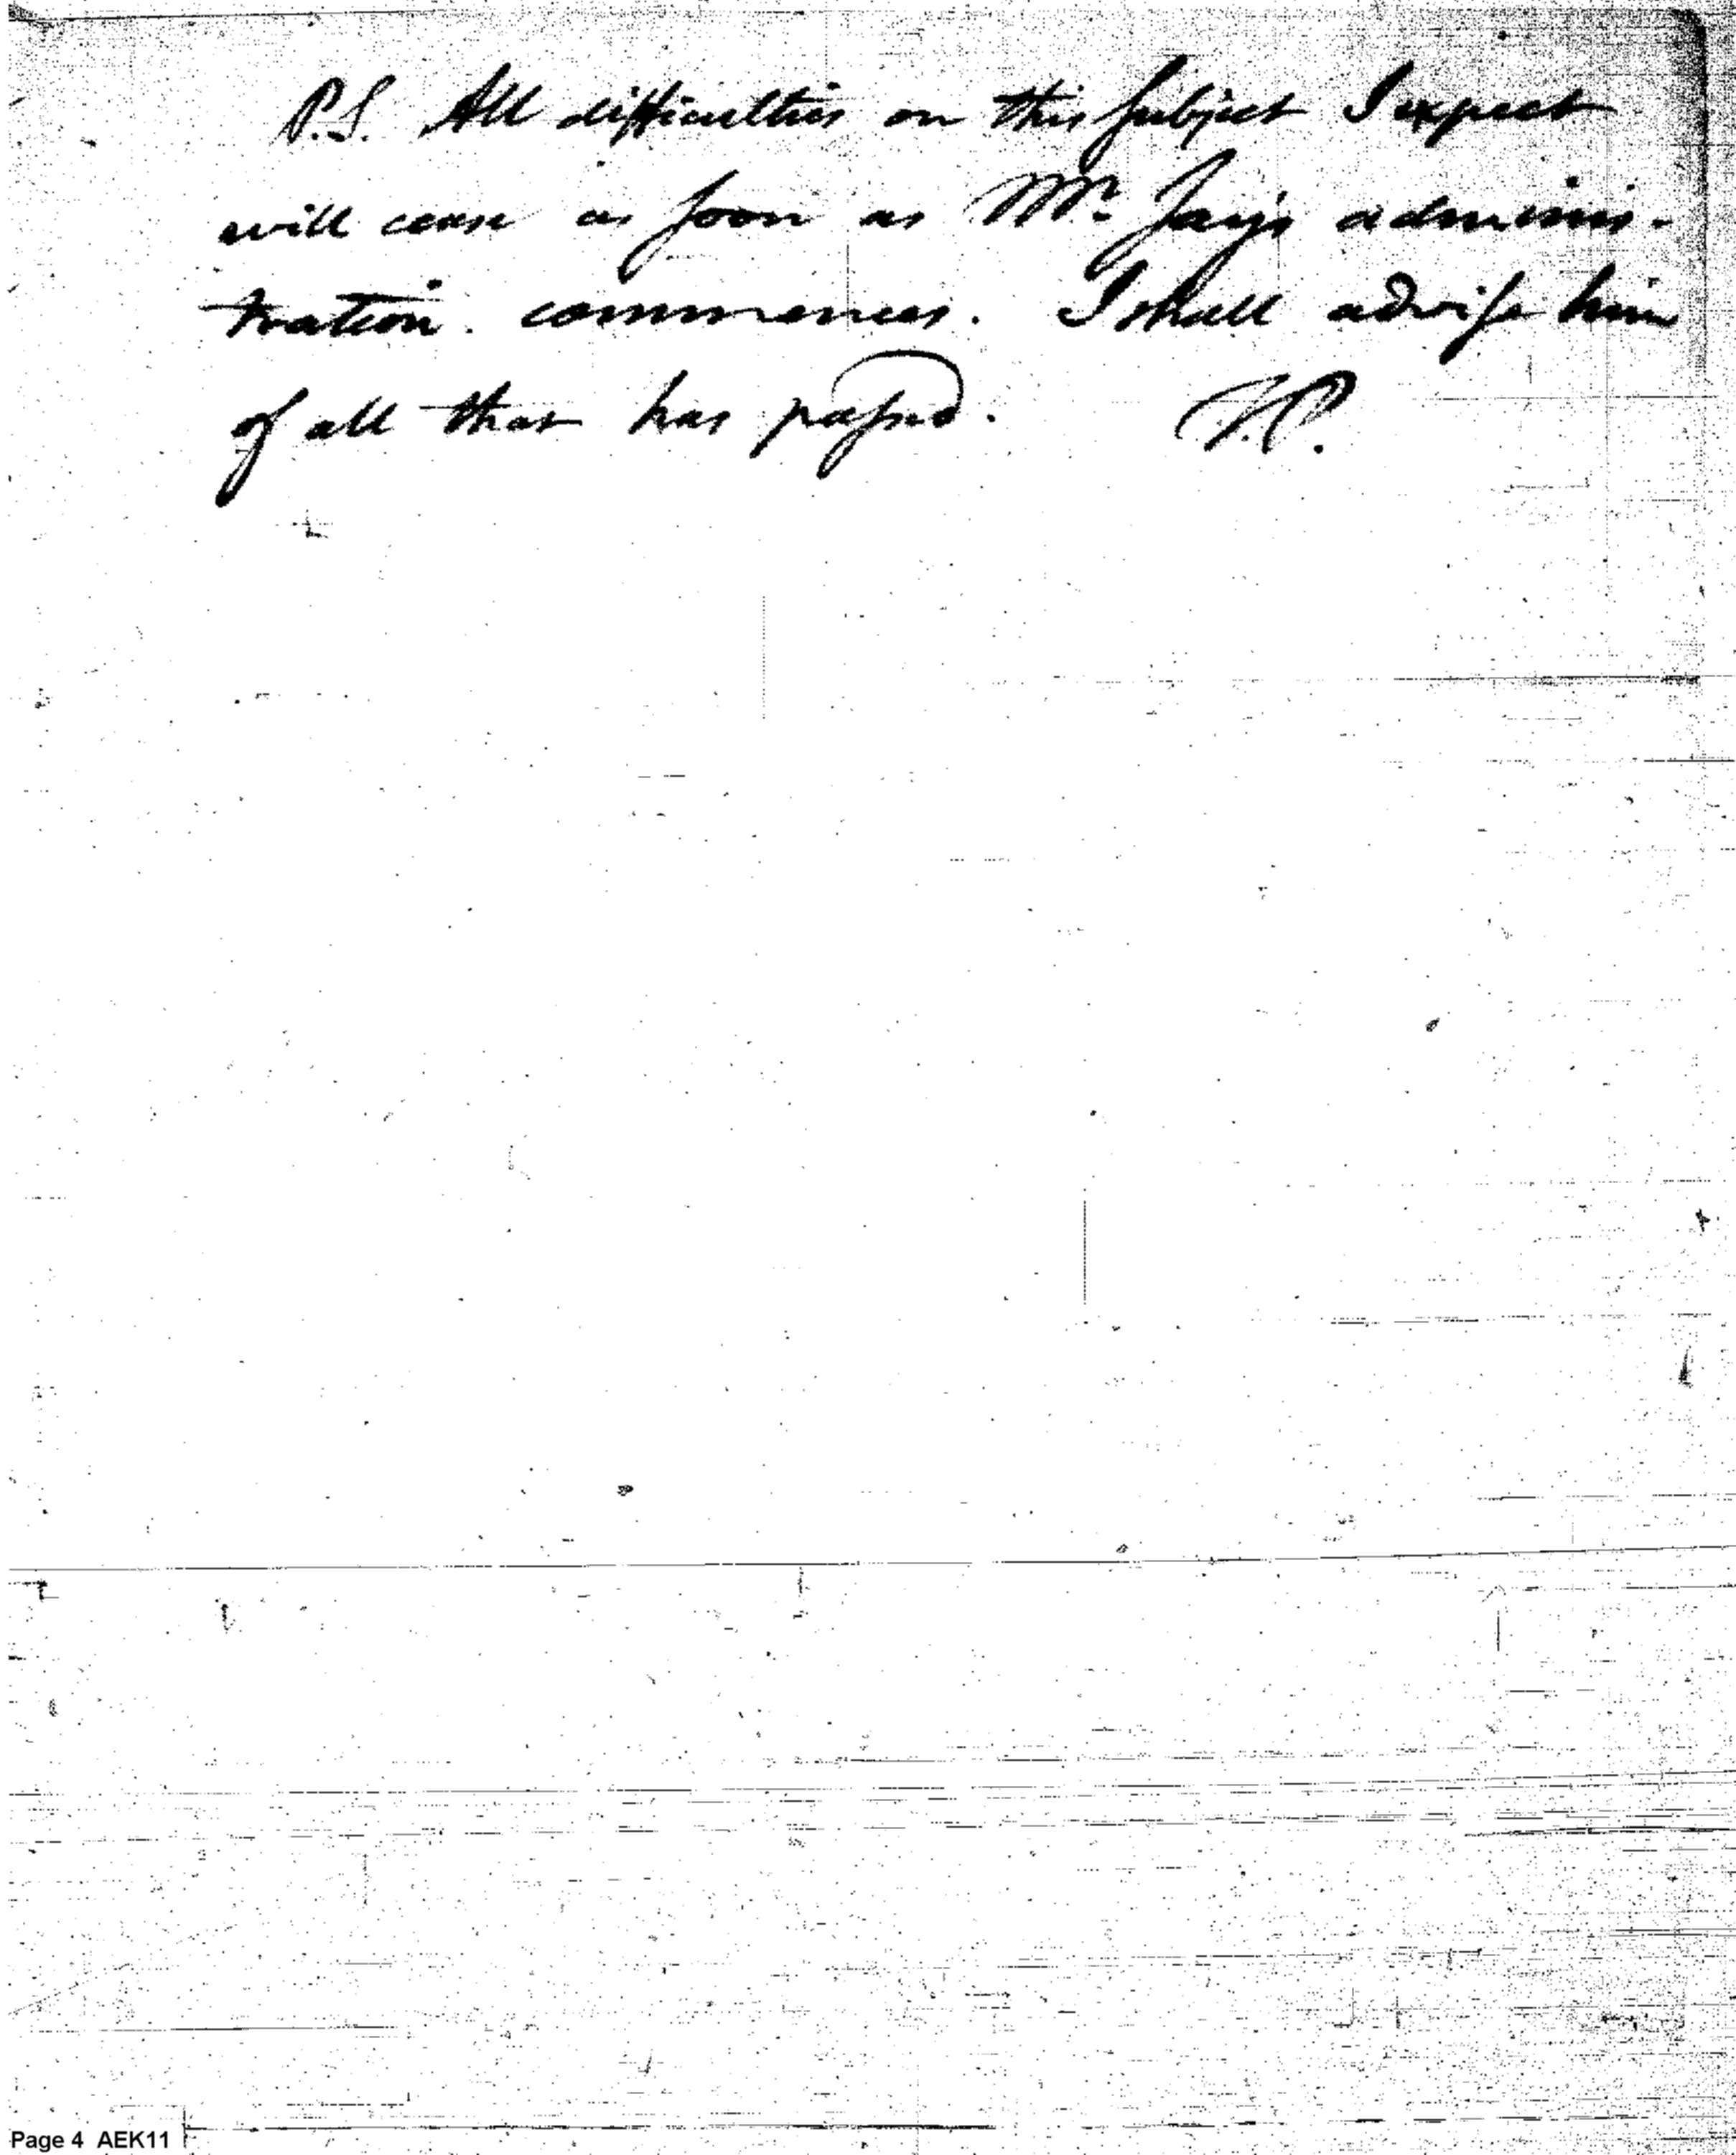 P.S. All difficulties on this subject I expect
will cease as soon as Mr. Jay's adminis-
tration commences. I shall advise him
of all that has passed. T.P.
Page 4 AEK11